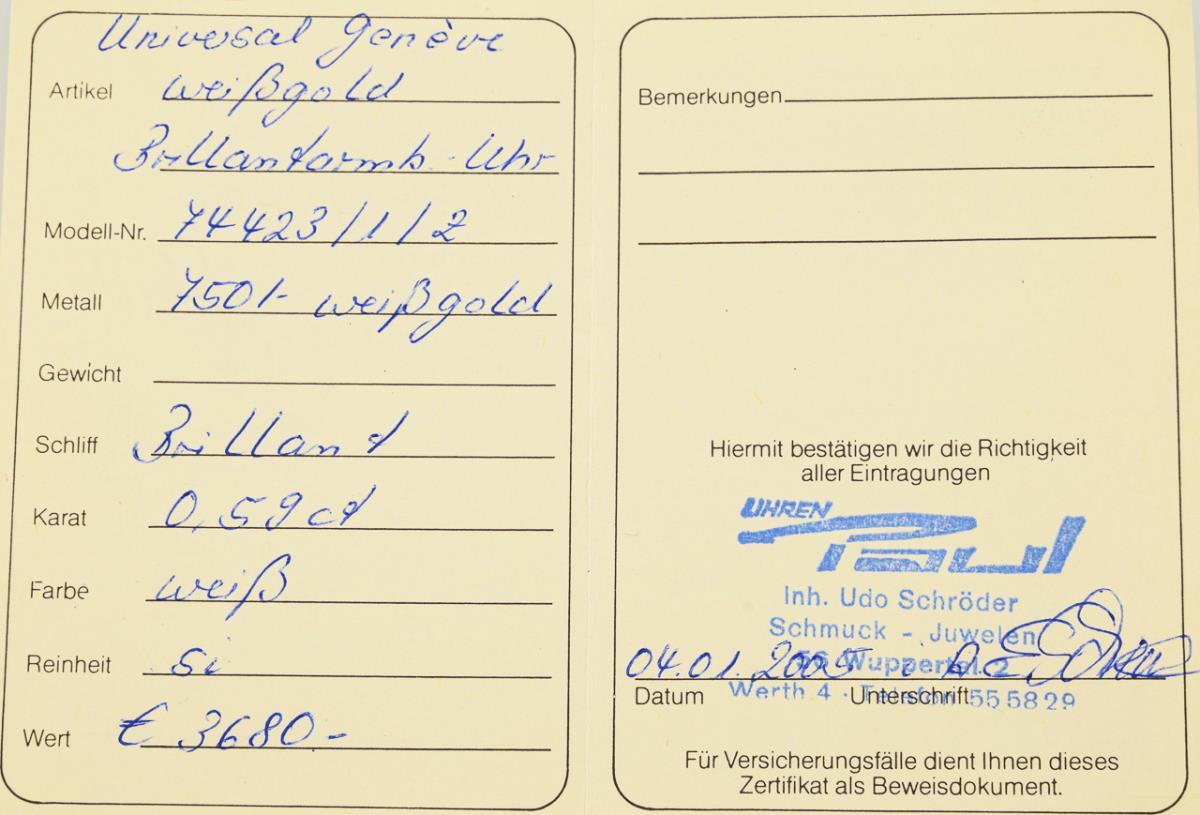 Universal Genève
Artikel weißgold
Brillantarmb.-Uhr
Modell-Nr. 74423/1/2
Metall 750/- weißgold
Gewicht
Schliff Brillant
Karat 0,59 ct
Farbe weiß
Reinheit si
Wert € 3680.-
Bemerkungen
Hiermit bestätigen wir die Richtigkeit
aller Eintragungen
UHREN
Paul
Inh. Udo Schröder
Schmuck - Juwelen
56 Wuppertal 2
Werth 4 · Telefon 555829
04.01.2005 i.A.
Datum Unterschrift
Für Versicherungsfälle dient Ihnen dieses
Zertifikat als Beweisdokument.